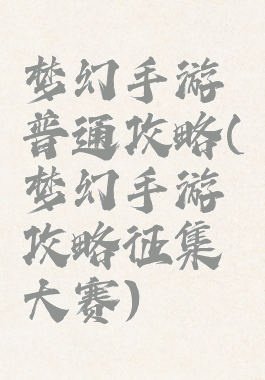 梦幻手游
普通攻略(
梦幻手游
攻略征集
大赛)